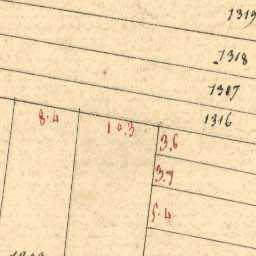 1319
1318
1317
1316
8.4
10.3
3.6
3.7
5.4